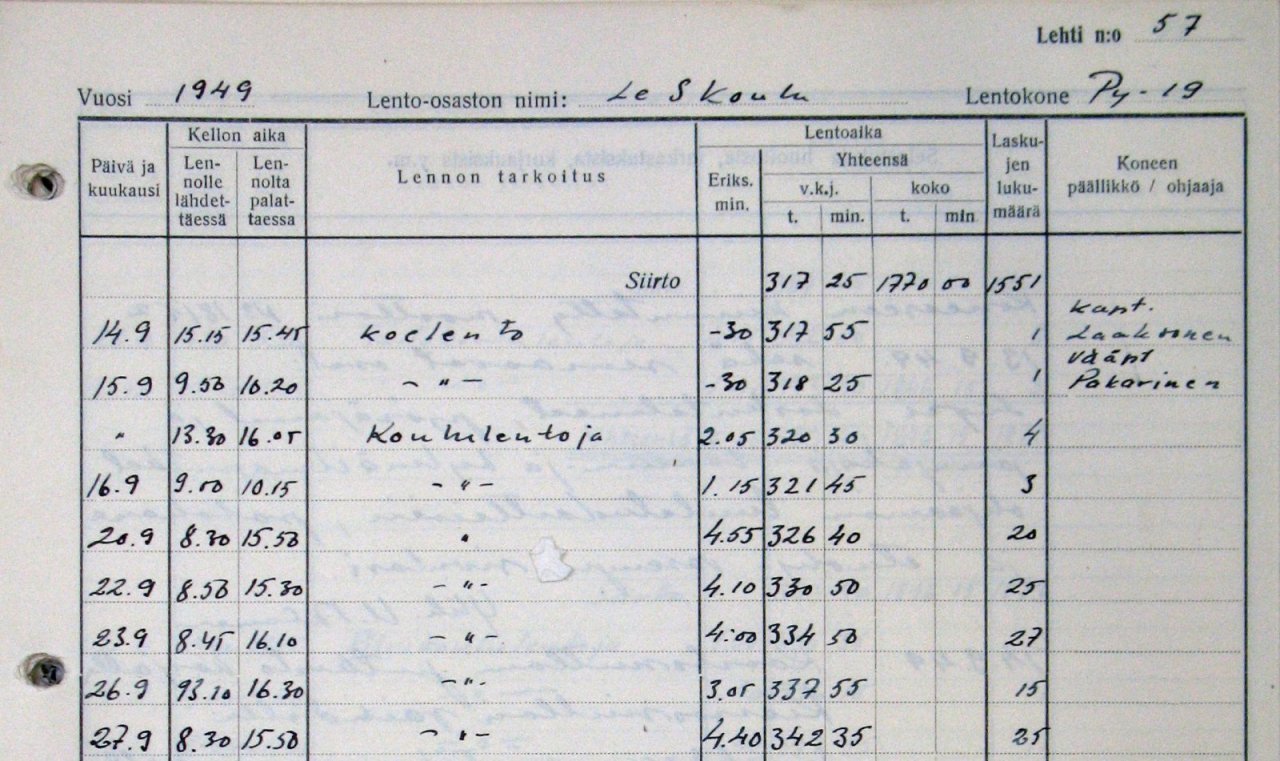 Lehti n:o 57
Vuosi 1949 Lento-osaston nimi: LeSKoulu Lentokone Py-19
Päivä ja kuukausi Kellon aika Lennon tarkoitus Lentoaika Laskujen lukumäärä Koneen päällikkö / ohjaaja
Lennolle lähdettäessä Lennolta palattaessa Eriks. min. Yhteensä
v.k.j. koko
t. min. t. min
Siirto 317 25 1770 00 1551
14.9 15.15 15.45 koelento -30 317 55 1 kapt. Laaksonen
15.9 9.50 10.20 - " - -30 318 25 1 vääpt Pakarinen
" 13.30 16.05 Koululentoja 2.05 320 30 4
16.9 9.00 10.15 - " - 1.15 321 45 3
20.9 8.30 15.50 " 4.55 326 40 20
22.9 8.50 15.30 - " - 4.10 330 50 25
23.9 8.45 16.10 - " - 4.00 334 50 27
26.9 13.10 16.30 - " - 3.05 337 55 15
27.9 8.30 15.50 - " - 4.40 342 35 25